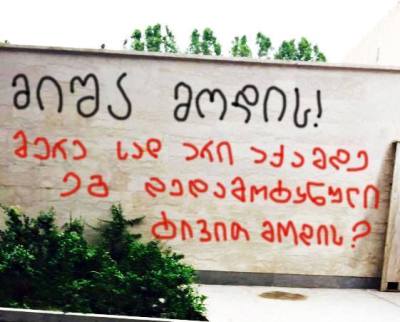 მიშა მოდის!
მერე სად არი აქამდე
ეგ დედამოტყნული
ტივით მოდის?